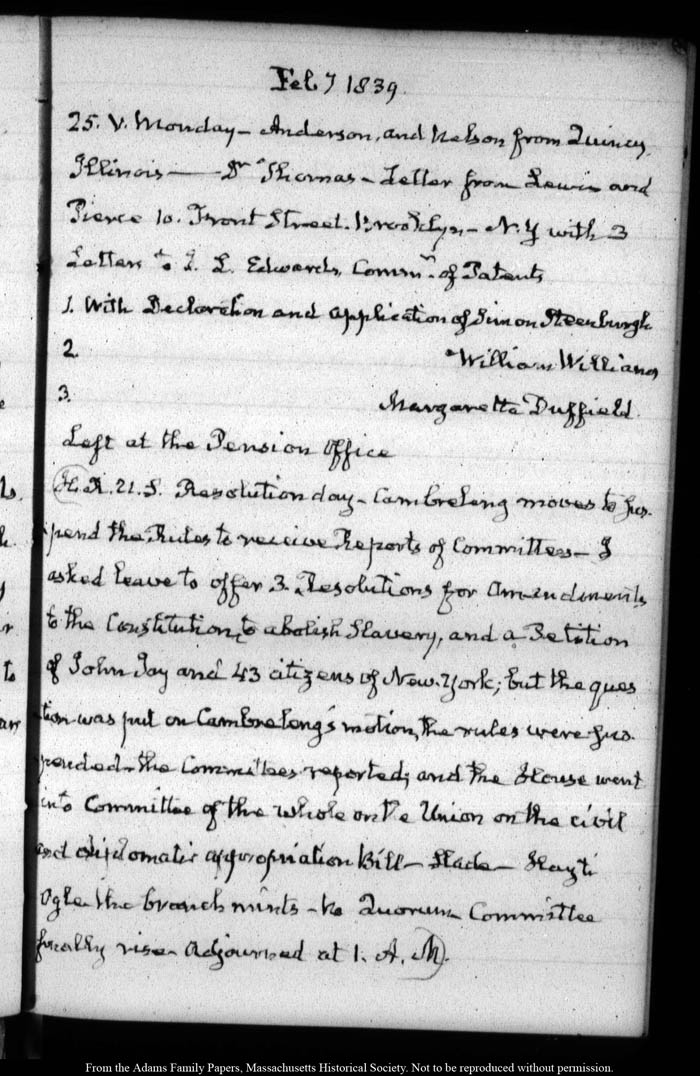 Feb 7 1839.
25. V. Monday – Anderson, and Nelson from Quincy
Illinois — Dr Thomas – Letter from Lewis and
Pierce 10. Front Street. Brooklyn – N.Y with 3
Letters to J. L. Edwards, Commr. of Patents
1. With Declaration and application of Simon Steenburgh
2. " William Williams
3. Margaretta Duffield.
Left at the Pension Office
(H.R. 21. S. Resolution day – Cambreleng moves to sus-
pend the Rules to receive Reports of Committees – I
asked leave to offer 3. Resolutions for amendments
to the Constitution, to abolish Slavery, and a Petition
of John Jay and 43 citizens of New-York; but the ques
tion was put on Cambreleng's motion, the rules were sus-
pended – the Committees reported; and the House went
into Committee of the whole on the Union on the civil
and diplomatic appropriation Bill – Slade – Hayti
Ogle the branch mints – no Quorum Committee
finally rise – adjourned at 1. A.M).
From the Adams Family Papers, Massachusetts Historical Society. Not to be reproduced without permission.